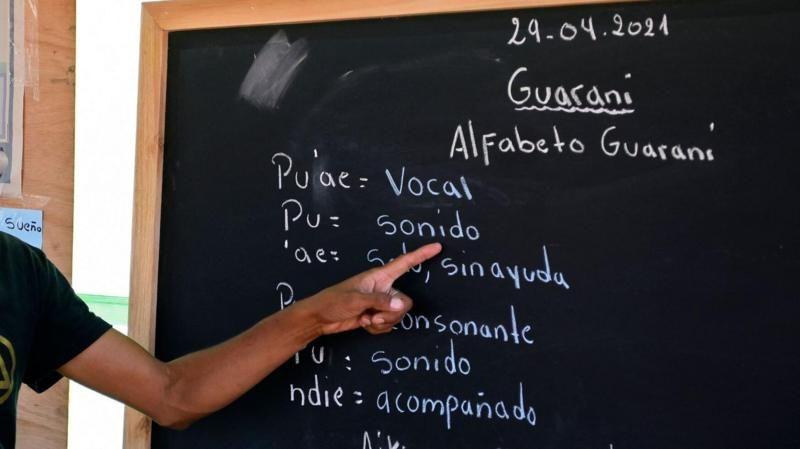 29-04.2021
Guarani
Alfabeto Guarani
Pu'ae = Vocal
Pu = sonido
'ae= solo, sin ayuda
consonante
Pu : sonido
ndie = acompañado
sueño